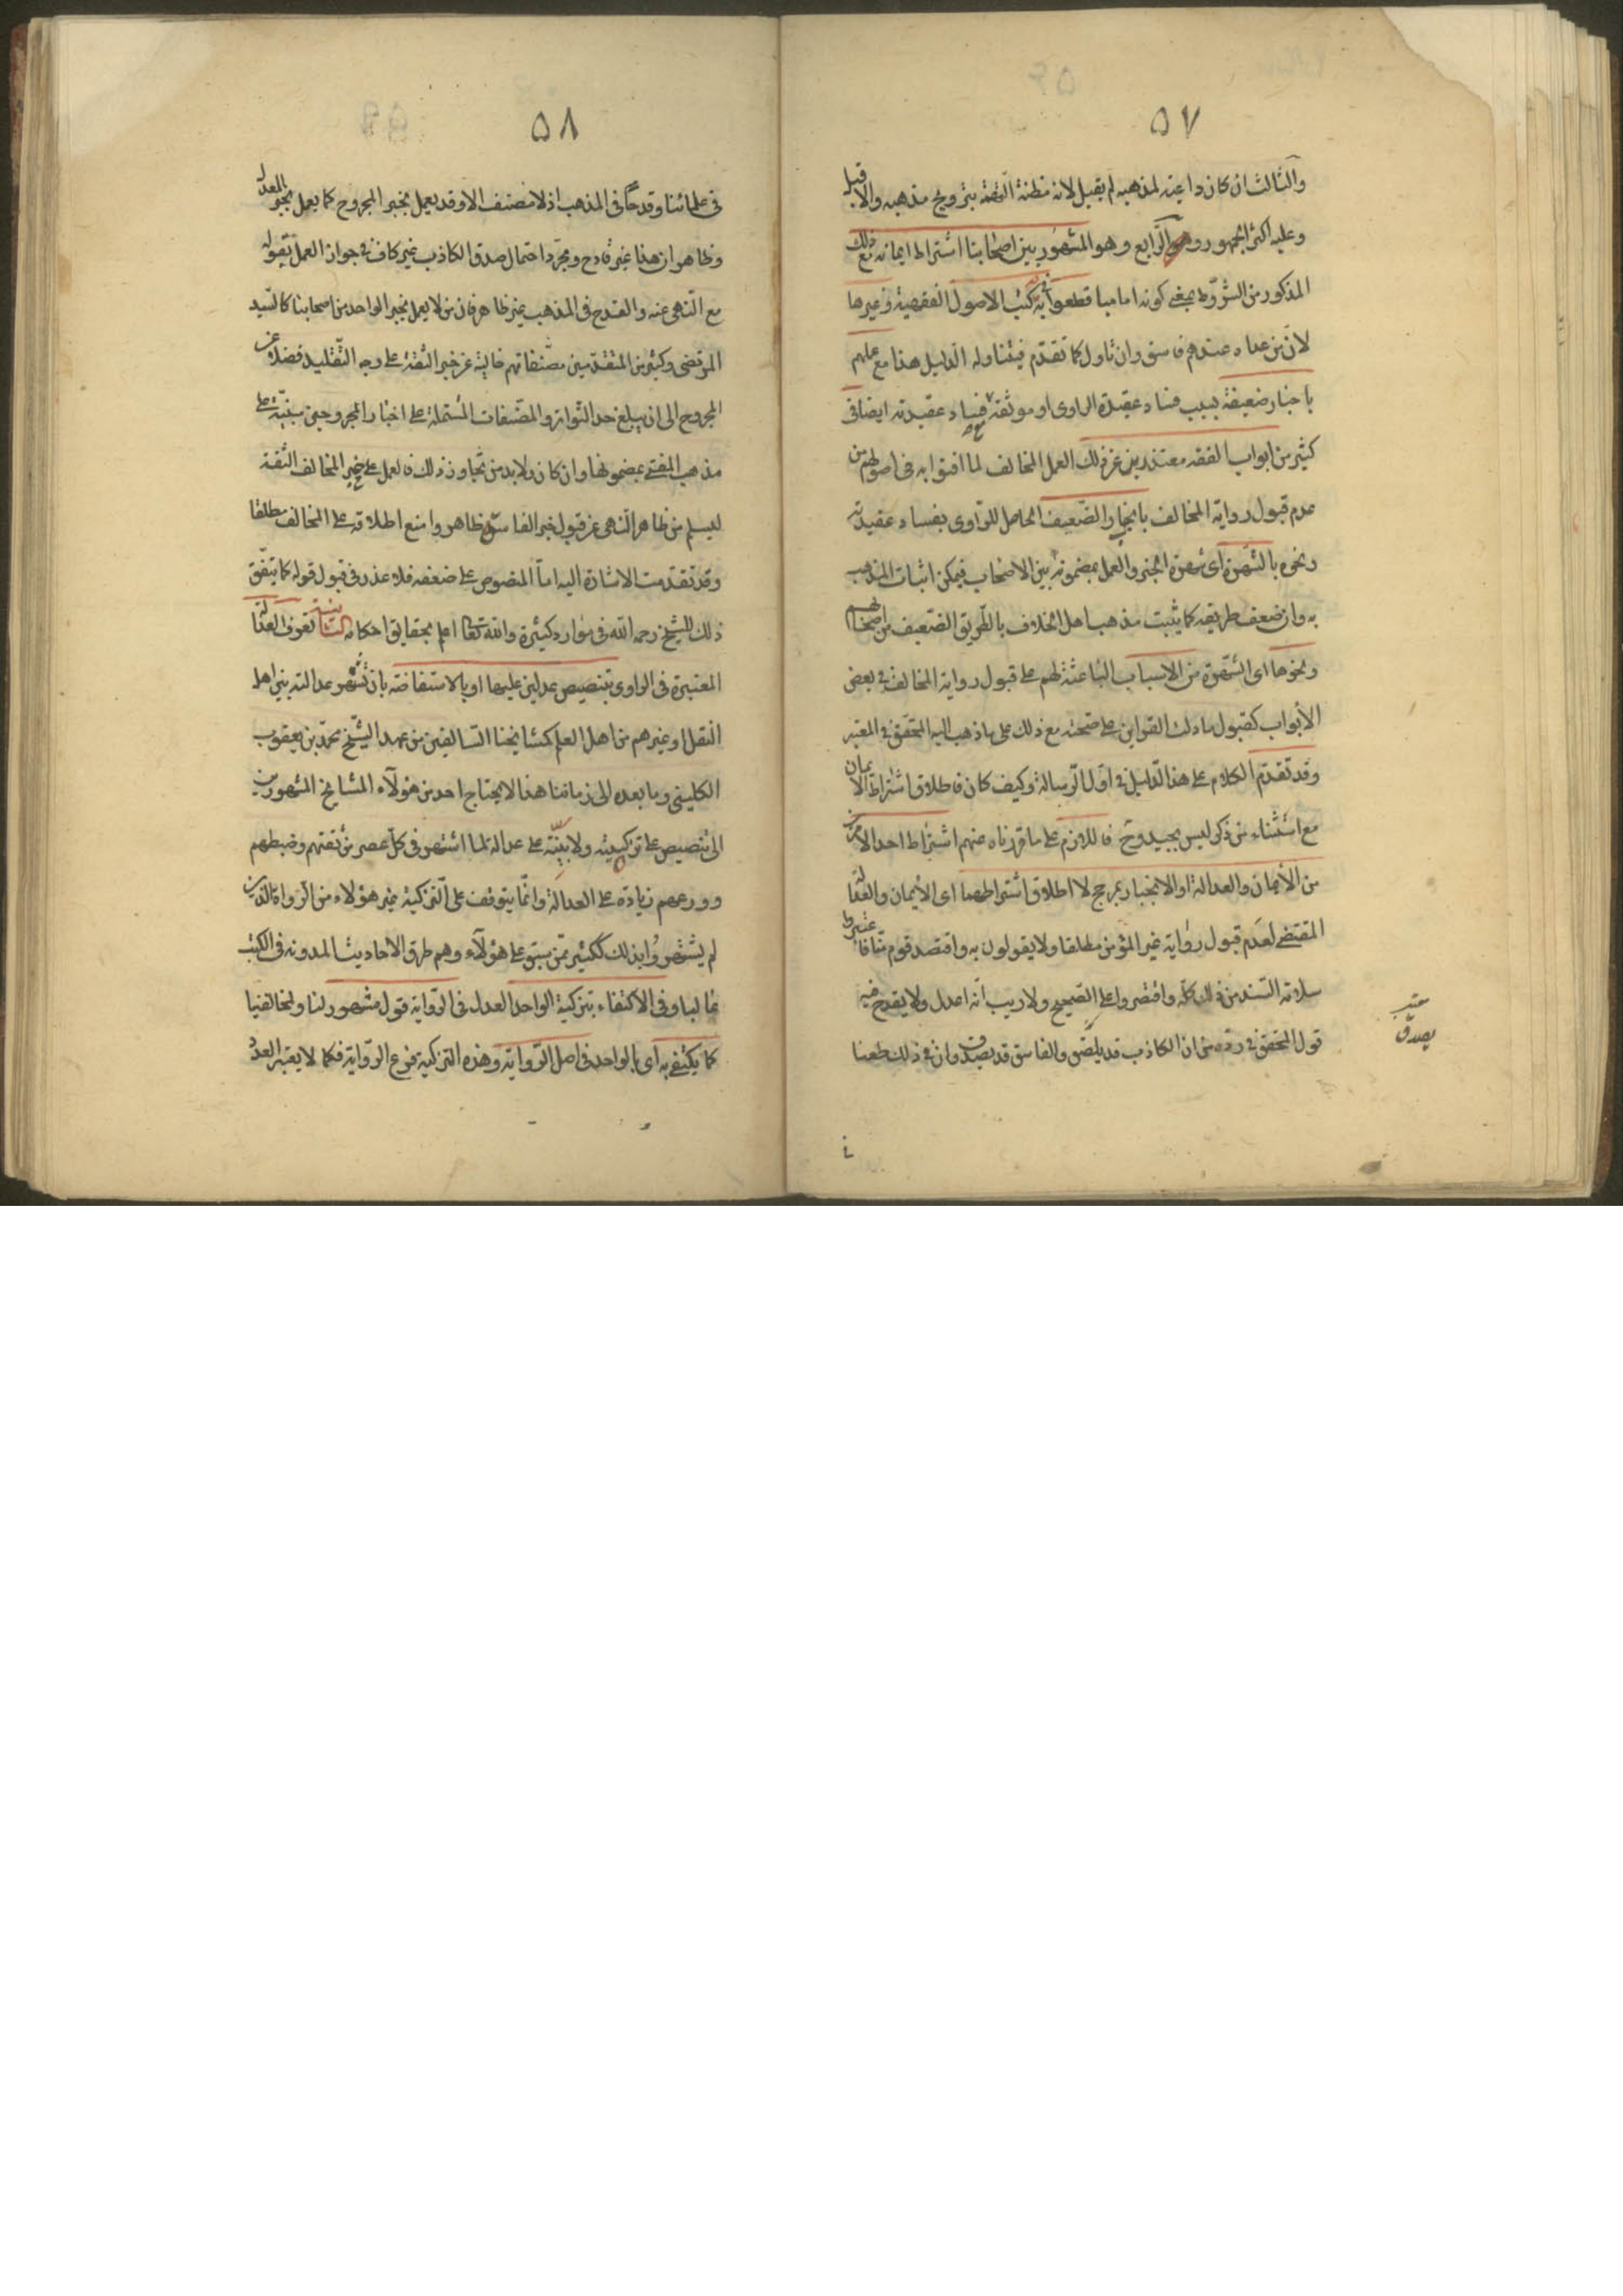 ٥٧
والثالث ان كان داعية لمذهبه لم يقبل لانه مظنة التهمة بترويج مذهبه والا قبل
وعليه اكثر الجمهور وهو الرابع وهو المشهور بين اصحابنا اشتراط ايمانه مع ذلك
المذكور من الشروط بمعنى كونه اماميا قطعوا به في كتب الاصول الفقهية وغيرها
لان من عداه عندهم فاسق وان تاول كما تقدم فيتناوله الدليل هذا مع عملهم
باخبار ضعيفة بسبب فساد عقيدة الراوى او موثقة مع فساد عقيدته ايضا فى
كثير من ابواب الفقه معتذرين عن ذلك العمل المخالف لما افتوا به فى اصولهم من
عدم قبول رواية المخالف بانجبار الضعيف الحاصل للراوى بفساد عقيدته
ونحوه بالشهرة اى شهرة الخبر والعمل بمضمونه بين الاصحاب فيمكن اثبات المذهب
به وان ضعف طريقه كما يثبت مذهب اهل الخلاف بالطريق الضعيف من اصحابهم
ونحوها اى الشهرة من الاسباب الباعثة لهم على قبول رواية المخالف فى بعض
الأبواب كقبول ما دلت القراين على صحته مع ذلك على ما ذهب اليه المحقق فى المعتبر
وقد تقدم الكلام على هذا الدليل فى اول الرسالة وكيف كان فاطلاق اشتراط الايمان
مع استثناء من ذكر ليس بجيد وح فاللازم على ما قررناه عنهم اشتراط احد الامرين
من الأيمان والعدالة او الانجبار بمرجح لا اطلاق اشتراطهما اى الأيمان والعدالة
المقتضى لعدم قبول رواية غير المؤمن مطلقا ولا يقولون به واقتصد قوم منا فاعتبروا
سلامة السند من ذلك كله واقتصروا على الصحيح ولا ريب انه اعدل ولا يقدح فيه
قول المحقق فى رده من ان الكاذب قد يلصق والفاسق قد يصدق وان فى ذلك طعنا
يصدق
٥٨
فى علمائنا وقدحا فى المذهب اذ لا مصنف الا وقد يعمل بخبر المجروح كما يعمل بخبر المعدل
وظاهر ان هذا غير قادح ومجرد احتمال صدق الكاذب غير كاف فى جواز العمل بقوله
مع النهى عنه والقدح فى المذهب غير ظاهر فان من لا يعمل بخبر الواحد من اصحابنا كالسيد
المرتضى وكثير من المتقدمين مصنفاتهم خالية عن خبر الثقة على وجه التقليد فضلا عن
المجروح الى ان يبلغ حد التواتر والمصنفات المشتملة على اخبار المجروحين مبنية على
مذهب المفتى بمضمونها وان كان ولا بد من تجاوز ذلك فالعمل على خبر المخالف الثقة
ليسلم من ظاهر النهى عن قبول خبر الفاسق ظاهر وامنع اطلاقه على المخالف مطلقا
وقد تقدمت الاشارة اليه اما المنصوص على ضعفه فلا عذر فى قبول قوله كما يتفق
ذلك للشيخ رحمه الله فى موارد كثيرة والله تعالى اعلم بحقايق احكامه الثانية تعرف العدالة
المعتبرة فى الراوى بتنصيص عدلين عليها او بالاستفاضة بان تشتهر عدالته بين اهل
النقل او غيرهم من اهل العلم كمشايخنا السالفين من عهد الشيخ محمد بن يعقوب
الكلينى وما بعده الى زماننا هذا لا يحتاج احد من هؤلاء المشايخ المشهورين
الى تنصيص على تزكيته ولا بينة على عدالة لما اشتهر فى كل عصر من ثقتهم وضبطهم
وورعهم زيادة على العدالة وانما يتوقف على التزكية غير هؤلاء من الرواة الذين
لم يشتهروا بذلك ككثير ممن سبق على هؤلاء وهم طرق الاحاديث المدونة فى الكتب
غالبا وفى الاكتفاء بتزكية الواحد العدل فى الرواية قول مشهور لنا ولمخالفينا
كما يكتفى به اى بالواحد فى اصل الرواية وهذه التزكية فرع الرواية فكما لا يعتبر العدد